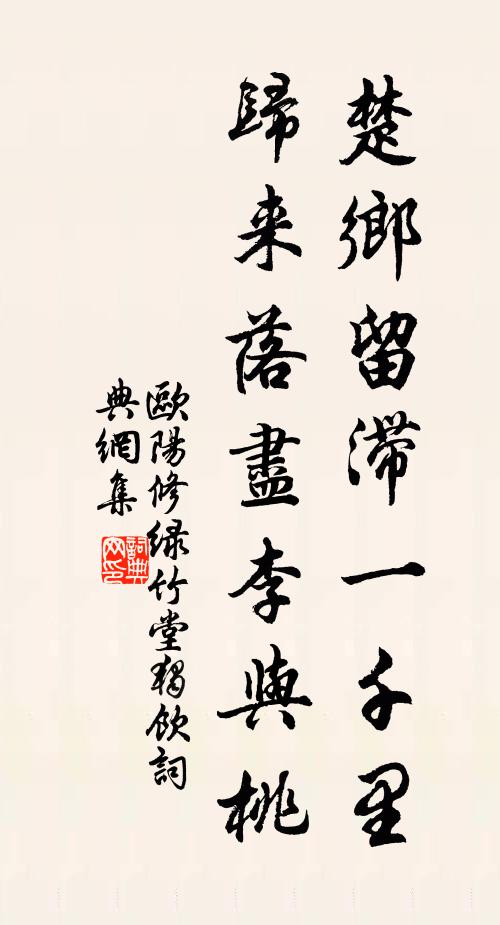 楚鄉留滯一千里
歸来落盡李與桃
歐陽修緑竹堂獨飲詞
典網集
詞典
网印